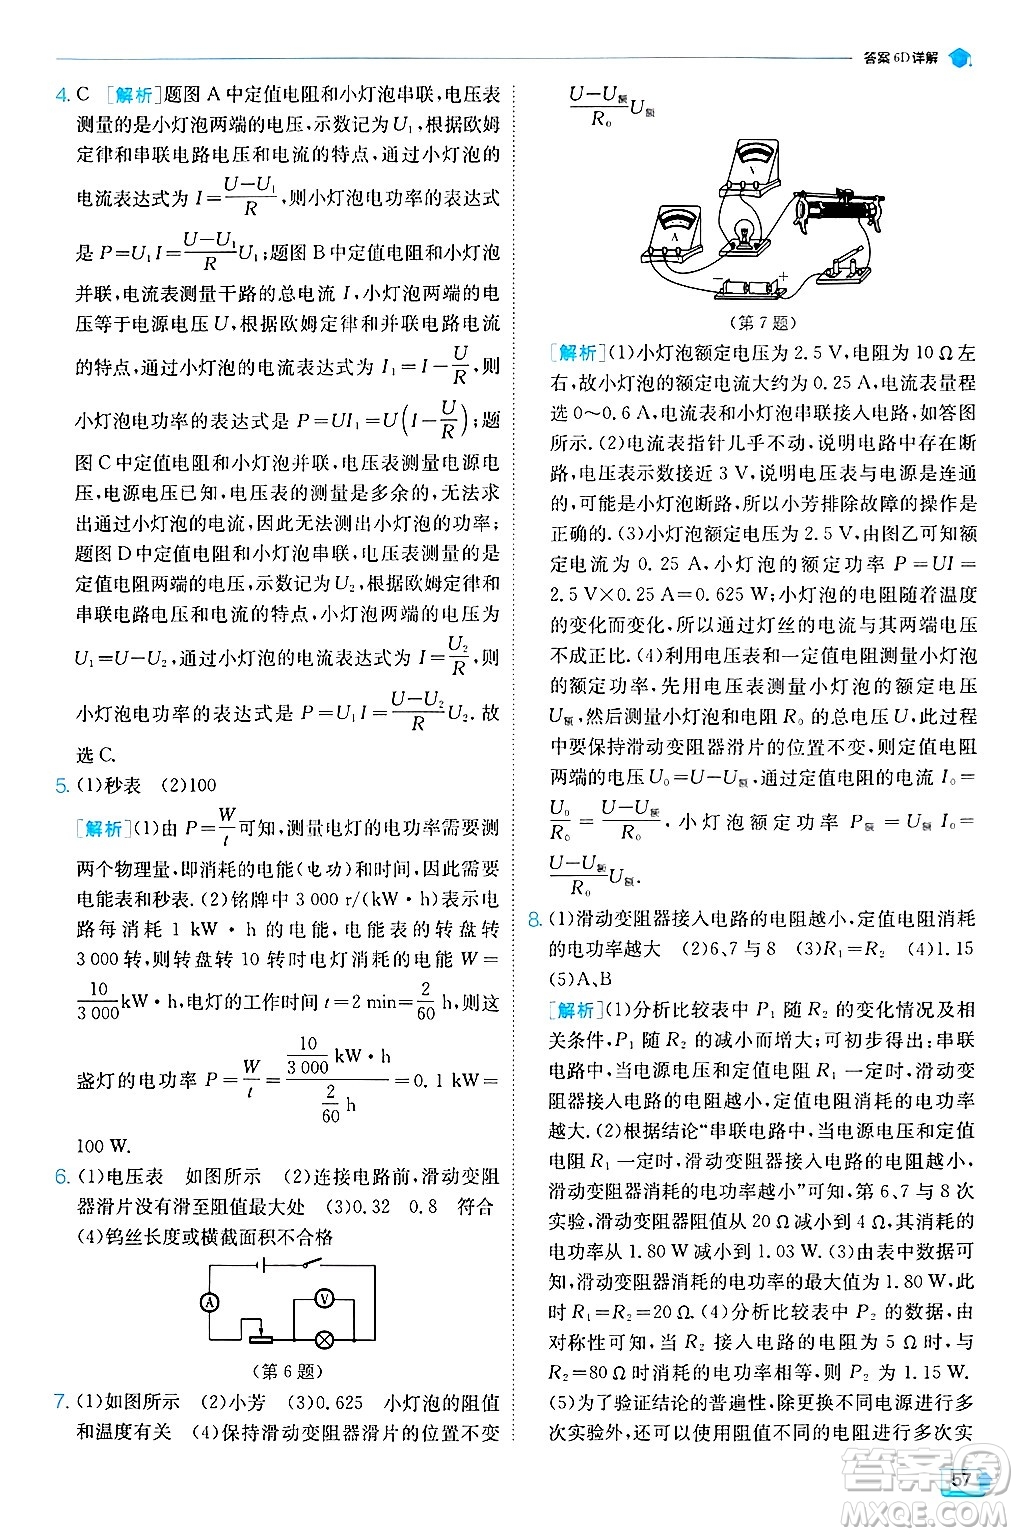 答案 6D详解
4. C [解析]题图 A 中定值电阻和小灯泡串联,电压表
测量的是小灯泡两端的电压,示数记为 U₁,根据欧姆
定律和串联电路电压和电流的特点,通过小灯泡的
电流表达式为 I=(U-U₁)/R,则小灯泡电功率的表达式
是 P=U₁I=(U-U₁)/R U₁;题图 B 中定值电阻和小灯泡
并联,电流表测量干路的总电流 I,小灯泡两端的电
压等于电源电压 U,根据欧姆定律和并联电路电流
的特点,通过小灯泡的电流表达式为 I₁=I-U/R,则
小灯泡电功率的表达式是 P=UI₁=U(I-U/R);题
图 C 中定值电阻和小灯泡并联,电压表测量电源电
压,电源电压已知,电压表的测量是多余的,无法测
出通过小灯泡的电流,因此无法测出小灯泡的功率;
题图 D 中定值电阻和小灯泡串联,电压表测量的是
定值电阻两端的电压,示数记为 U₂,根据欧姆定律和
串联电路电压和电流的特点,小灯泡两端的电压为
U₁=U-U₂,通过小灯泡的电流表达式为 I=U₂/R,则
小灯泡电功率的表达式是 P=U₁I=(U-U₂)/R U₂.故
选 C.
5. (1)秒表 (2)100
[解析](1)由 P=W/t可知,测量电灯的电功率需要测
两个物理量,即消耗的电能(电功)和时间,因此需要
电能表和秒表.(2)铭牌中 3 000 r/(kW·h)表示电
路每消耗 1 kW·h 的电能,电能表的转盘转
3 000 转,则转盘转 10 转时电灯消耗的电能 W=
10/3 000 kW·h,电灯的工作时间 t=2 min=2/60 h,则这
盏灯的电功率 P=W/t=(10/3 000 kW·h)/(2/60 h)=0.1 kW=
100 W.
6. (1)电压表 如图所示 (2)连接电路前,滑动变阻
器滑片没有滑至阻值最大处 (3)0.32 0.8 符合
(4)钨丝长度或横截面积不合格
A
V
(第 6 题)
7. (1)如图所示 (2)小芳 (3)0.625 小灯泡的阻值
和温度有关 (4)保持滑动变阻器滑片的位置不变
(U-U额)/R₀ U额
V
A
- +
(第 7 题)
[解析](1)小灯泡额定电压为 2.5 V,电阻为 10 Ω 左
右,故小灯泡的额定电流大约为 0.25 A,电流表量程
选 0~0.6 A,电流表和小灯泡串联接入电路,如答图
所示.(2)电流表指针几乎不动,说明电路中存在断
路,电压表示数接近 3 V,说明电压表与电源是连通
的,可能是小灯泡断路,所以小芳排除故障的操作是
正确的.(3)小灯泡额定电压为 2.5 V,由图乙可知额
定电流为 0.25 A,小灯泡额定功率 P=UI=
2.5 V×0.25 A=0.625 W;小灯泡的电阻随着温度
的变化而变化,所以通过灯丝的电流与其两端电压
不成正比.(4)利用电压表和一定值电阻测量小灯泡
的额定功率,先用电压表测量小灯泡的额定电压
U额,然后测量小灯泡和电阻 R₀ 的总电压 U,此过程
中要保持滑动变阻器滑片的位置不变,则定值电阻
两端的电压 U₀=U-U额,通过定值电阻的电流 I₀=
U₀/R₀=(U-U额)/R₀,小灯泡额定功率 P额=U额I₀=
(U-U额)/R₀ U额.
8. (1)滑动变阻器接入电路的电阻越小,定值电阻消耗
的电功率越大 (2)6、7 与 8 (3)R₁=R₂ (4)1.15
(5)A、B
[解析](1)分析比较表中 P₁ 随 R₂ 的变化情况及相
关条件,P₁ 随 R₂ 的减小而增大;可初步得出:串联
电路中,当电源电压和定值电阻 R₁ 一定时,滑动变
阻器接入电路的电阻越小,定值电阻消耗的电功率
越大.(2)根据结论“串联电路中,当电源电压和定值
电阻 R₁ 一定时,滑动变阻器接入电路的电阻越小,
滑动变阻器消耗的电功率越小”可知,第 6、7 与 8 次
实验,滑动变阻器阻值从 20 Ω 减小到 4 Ω,其消耗的
电功率从 1.80 W 减小到 1.03 W.(3)由表中数据可
知,滑动变阻器消耗的电功率的最大值为 1.80 W,此
时 R₁=R₂=20 Ω.(4)分析比较表中 P₂ 的数据,由
对称性可知,当 R₂ 接入电路的电阻为 5 Ω 时,与
R₂=80 Ω时消耗的电功率相等,则应为 1.15 W.
(5)为了验证结论的普遍性,除更换不同电源进行多
次实验外,还可以使用阻值不同的定值电阻多次实
57
答案圈
MXQE.COM